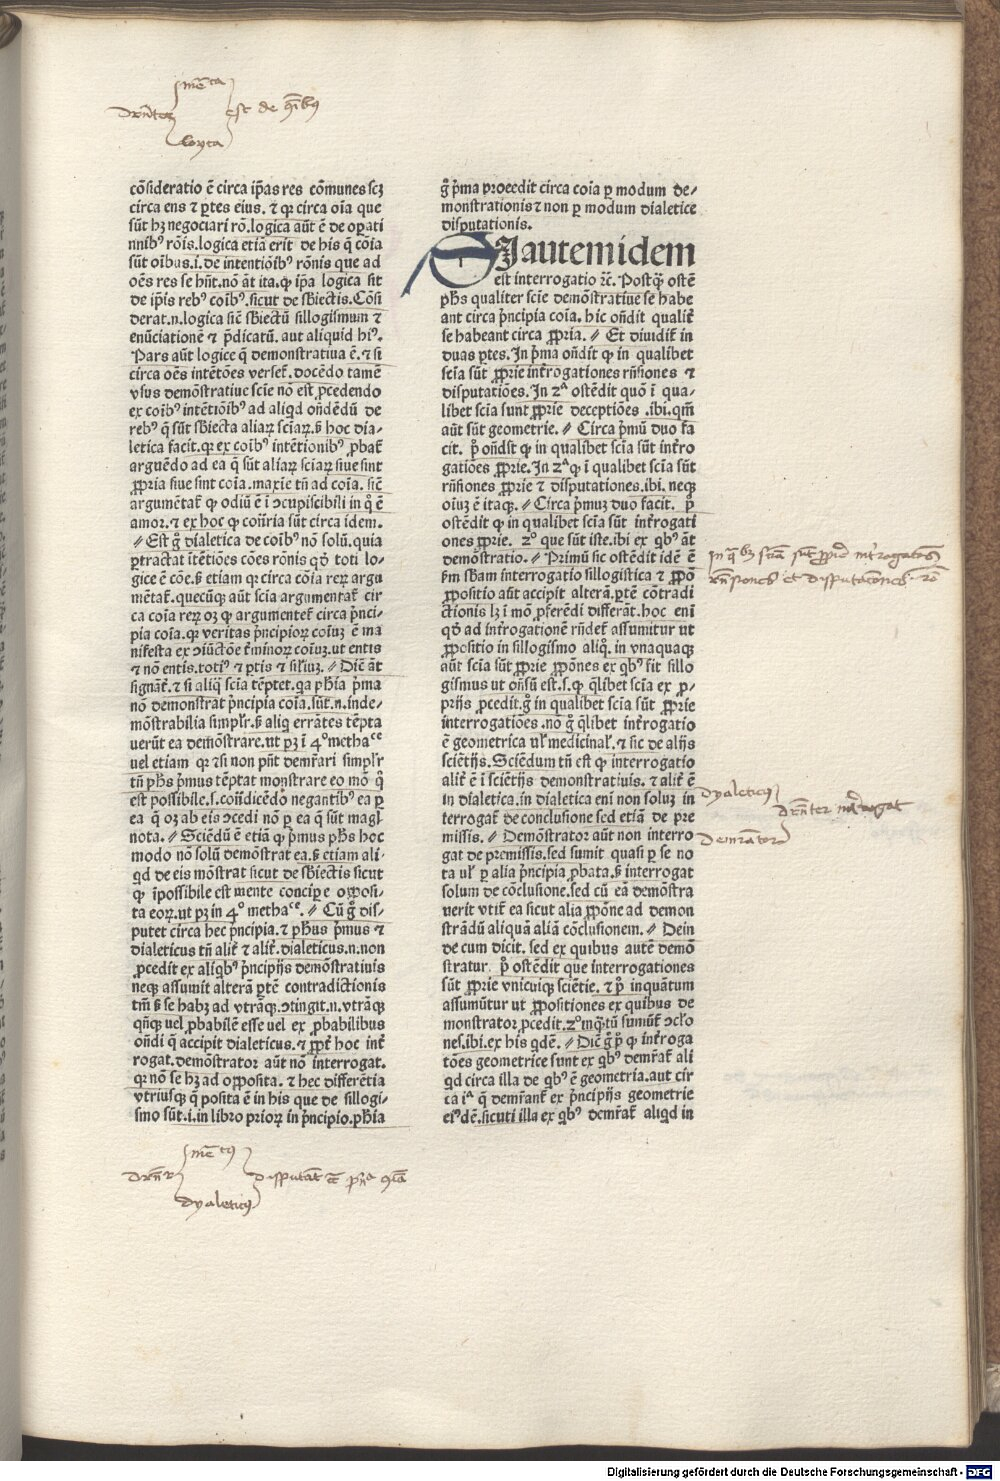 met͞ca
Dr̄nter
est de q̄ibus
loyca
cōsideratio ē circa ip̄as res cōmunes scꝫ
circa ens ⁊ ꝑtes eius. ⁊ qꝛ circa oīa que
sūt hꝫ negociari rō. logica aūt ē de oꝑati
nnibꝰ rōis. logica etiā erit de his q̄ cōia
sūt oībus. i. de intentiōibꝰ rōnis que ad
oēs res se hn̄t. nō āt ita. ꝙ ip̄a logica sit
de ip̄is rebꝰ coībꝰ. sicut de sb̄iectis. Cōsi
derat. n. logica sic̄ sb̄iectū sillogismum ⁊
enūciationē ⁊ p̄dicatū. aut aliquid hiꝰ.
Pars aūt logice q̄ demonstratiua ē. ⁊ si
circa oēs intētōes verset̄. docēdo tamē
vsus demōstratiue scie nō est ꝓcedendo
ex coībꝰ intētiōibꝰ ad aliqd on̄dēdū de
rebꝰ q̄ sūt sb̄iecta aliaꝝ sciaꝝ. s̄ hoc dia-
letica facit. qꝛ ex coībꝰ intētionibꝰ ꝓbat̄
arguēdo ad ea q̄ sūt aliaꝝ sciaꝝ siue sint
ꝓpria siue sint coīa. maxīe tn̄ ad coīa. sic̄
argumētat̄ ꝙ odiū ē ī ↄcupiscibili in q̊ ē
amor. ⁊ ex hoc ꝙ con̄ria sūt circa idem.
⫽ Est g̊ dialetica de coībꝰ nō solū. quia
ꝑtractat ītētiōes cōes rōnis qd̓ toti lo-
gice ē cōe. s̄ etiam qꝛ circa cōia reꝝ argu
mētat̄. quecūqꝫ aūt scia argumentat̄ cir
ca coīa reꝝ oꝫ ꝙ argumentet̄ circa p̄nci-
pia coīa. qꝛ veritas p̄ncipioꝝ coīuꝫ ē ma
nifesta ex ↄiūctōe t̄minoꝝ coīuꝫ. vt entis
⁊ nō entis. totiꝰ ⁊ ꝑtis ⁊ sil̄iuꝫ. ⫽ Dic̄ āt
signāt̄. ⁊ si aliq̄ scia tēptet. qꝛ ph̄ia p̄ma
nō demonstrat p̄ncipia coīa. sūt. n. inde-
mōstrabilia simpl̄r. s̄ aliq̄ errātes tēpta
uerūt ea demōstrare. vt pꝫ ī 4° metha͞ce
uel etiam qꝛ ⁊ si non pn̄t demr̄ari simpl̄r
tn̄ ph̄s p̄mus tēptat monstrare eo mō q̊
est possibile. s. con̄dicēdo negantibꝰ ea ꝑ
ea q̄ oꝫ ab eis ↄcedi nō ꝑ ea q̄ sūt magꝭ
nota. ⫽ Sciēdū ē etiā ꝙ p̄mus ph̄s hoc
modo nō solū demōstrat ea. s̄ etiam ali-
qd de eis mōstrat sicut de sb̄iectis sicut
ꝙ īpossibile est mente concipe oꝓposi-
ta eoꝝ. vt pꝫ in 4° metha͞ce. ⫽ Cū g̊ dis-
putet circa hec p̄ncipia. ⁊ ph̄us p̄mus ⁊
dialeticus tn̄ alit̄ ⁊ alit̄. dialeticus. n. non
ꝓcedit ex aliqbꝰ p̄ncipijs demōstratiuis
neqꝫ assumit alterā ꝑtē contradictionis
tm̄ s̄ se habꝫ ad vtrāqꝫ. ↄtingit. n. vtrāqꝫ
qn̄qꝫ uel ꝓbabilē esse uel ex ꝓbabilibus
on̄di q̄ accipit dialeticus. ⁊ ꝓpt̄ hoc int̄
rogat. demōstrator aūt nō interrogat.
qꝛ nō se hꝫ ad oꝓposita. ⁊ hec differētia
vtriusqꝫ q̄ posita ē in his que de sillogi-
smo sūt. i. in libro prioꝝ in p̄ncipio. ph̄ia
met͞cus
Dr̄nr
disputāt
dyaleticus
g̊ p̄ma procedit circa coīa ꝑ modum de-
monstrationis ⁊ non ꝑ modum dialetice
disputationis.
SI autem idem
est interrogatio ⁊c̄. Postqꝫ ostē
ph̄s qualiter scie demōstratiue se habe
ant circa p̄ncipia coīa. hic on̄dit qualit̄
se habeant circa ꝓpria. ⫽ Et diuidit̄ in
duas ꝑtes. In p̄ma on̄dit ꝙ in qualibet
scīa sūt ꝓprie int̄rogationes rn̄siones ⁊
disputatiōes. In 2ᵃ ostēdit quō ī qua-
libet scīa sunt ꝓprie deceptiōes. ibi. qm̄
aūt sūt geometrie. ⫽ Circa p̄mū duo fa
cit. p̊ on̄dit ꝙ in qualibet scīa sūt int̄ro
gatiōes ꝓprie. In 2ᵃ ꝙ ī qualibet scīa sūt
rn̄siones ꝓprie ⁊ disputationes. ibi. neqꝫ
oīuꝫ ē itaqꝫ. ⫽ Circa p̄muꝫ duo facit. p̊
ostēdit ꝙ in qualibet scīa sūt int̄rogati
ones ꝓprie. 2° que sūt iste. ibi ex qbꝰ āt
demōstratio. ⫽ Primū sic ostēdit idē ē
s̄m sb̄am interrogatio sillogistica ⁊ ꝓpō
ꝓpositio aūt accipit alterā ꝑtē cōtradi
ctionis lꝫ ī mō ꝓferēdi differāt. hoc enī
qd̓ ad int̄rogationē rn̄det̄ assumitur ut
ꝓpositio in sillogismo aliq̊. in vnaquaqꝫ
aūt scīa sūt ꝓprie ꝓpōnes ex qbꝰ fit sillo
gismus ut on̄sū est. s. ꝙ qlibet scīa ex ꝓ-
prijs ꝓcedit. g̊ in qualibet scīa sūt ꝓprie
interrogatiōes. nō g̊ qlibet int̄rogatio
ē geometrica ul̓ medicinal̓. ⁊ sic de alijs
sciētijs. Sciēdum tn̄ est ꝙ interrogatio
alit̄ ē ī sciētijs demonstratiuis. ⁊ alit̄ ē
in dialetica. in dialetica enī non soluꝫ in
terrogat̄ de conclusione sed etiā de pre
missis. ⫽ Demōstrator aūt non interro
gat de premissis. sed sumit quasi ꝑ se no
ta ul̓ ꝑ alia p̄ncipia ꝓbata. s̄ interrogat
solum de cōclusione. sed cū eā demōstra
uerit vtit̄ ea sicut alia ꝓpōne ad demon
strādū aliquā aliā cōclusionem. ⫽ Dein
de cum dicit. sed ex quibus autē demō
stratur. p̊ ostēdit que interrogationes
sūt ꝓprie vnicuiqꝫ sciētie. ⁊ p̊ inquātum
assumūtur ut ꝓpositiones ex quibus de
monstrator ꝓcedit. 2° inqꝫtū sumūt̄ ↄclo
nes. ibi. ex his qdē. ⫽ Dic̄ g̊ p̊ ꝙ int̄roga
tōes geometrice sunt ex qbꝰ demr̄at̄ ali
qd circa illa de qbꝰ ē geometria. aut cir
ca iᵃ q̄ demr̄ant̄ ex p̄ncipijs geometrie
eiꝰdē. sicuti illa ex qbꝰ demr̄at̄ aliqd in
In q̄lꝫ scīa sūt ꝓprie int̄rogatōes
rn̄siones et disputatōnes
dyaleticus
dr̄nter int̄rogat
Demr̄ator
Digitalisierung gefördert durch die Deutsche Forschungsgemeinschaft - DFG